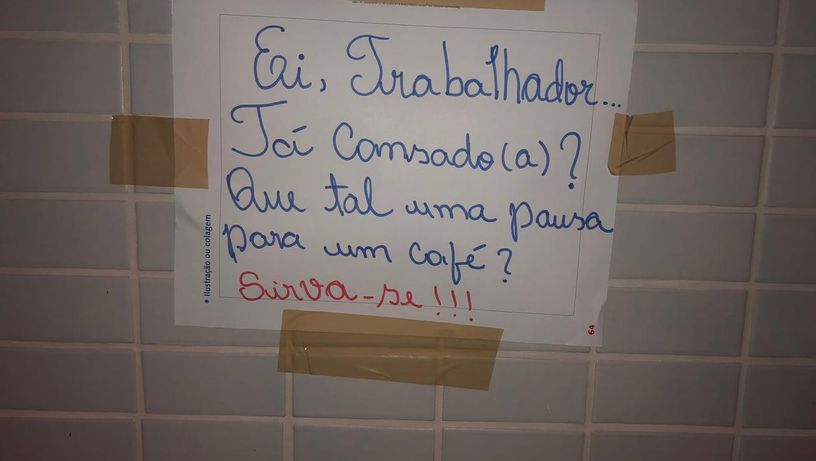 Ei, Trabalhador...
Tá Cansado(a)?
Que tal uma pausa
para um café?
Sirva-se!!!
• Ilustração ou colagem
64